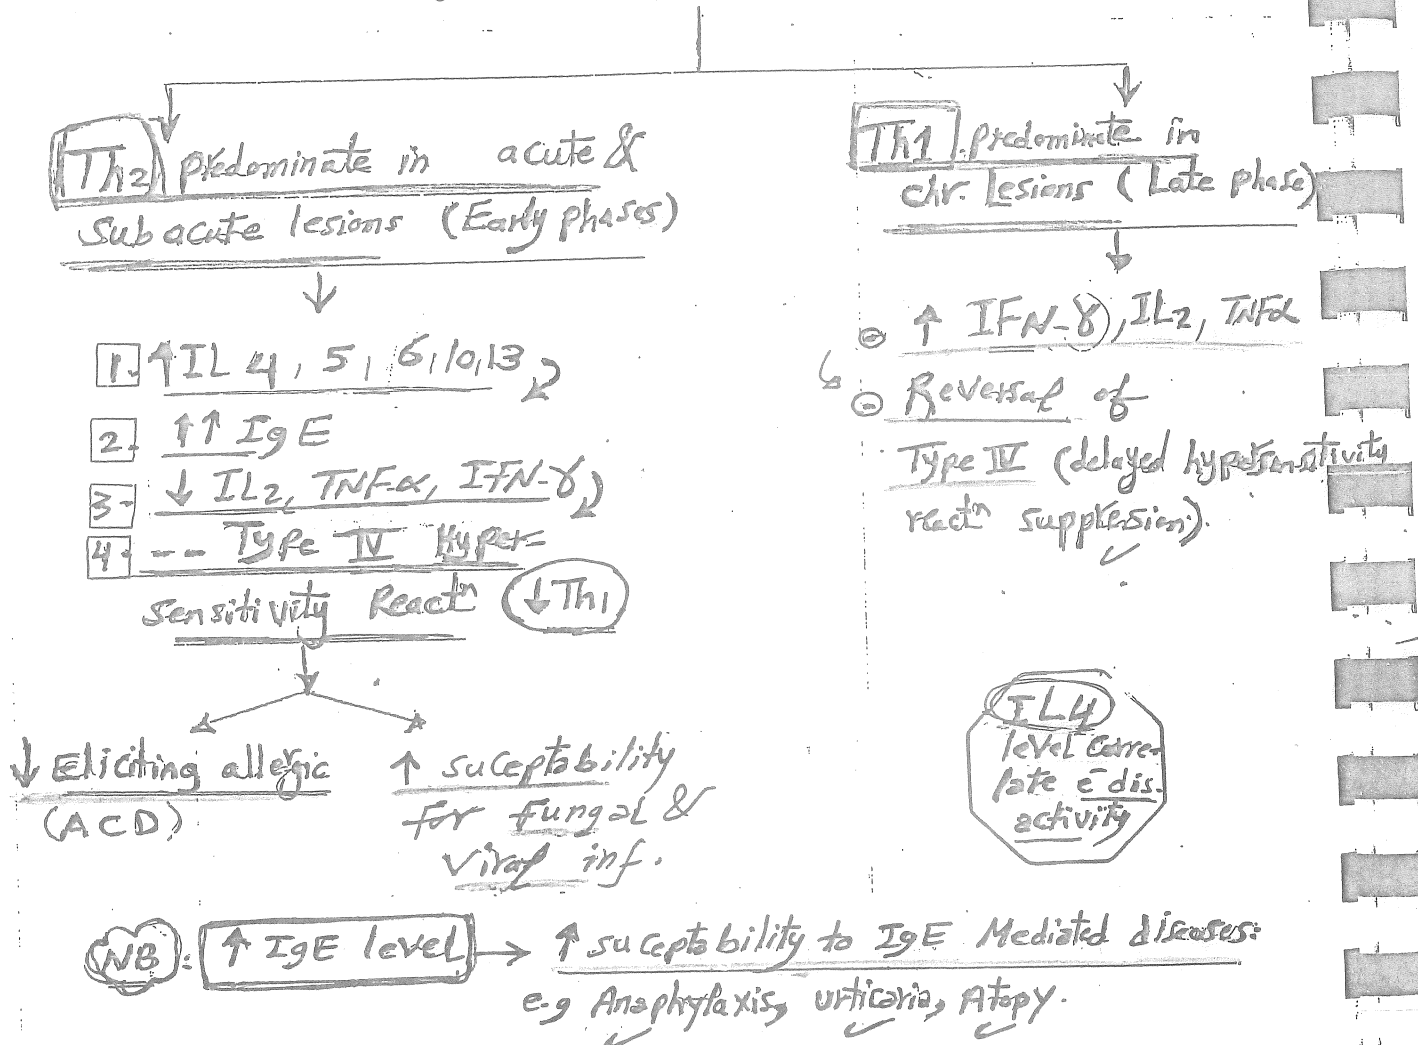 Th2 predominate in acute &
Subacute lesions (Early phases)
1. ↑ IL 4, 5, 6, 10, 13
2. ↑↑ IgE
3- ↓ IL2, TNF-α, IFN-γ
4- -- Type IV Hyper-
sensitivity Reactn ↓Th1
↓ Eliciting allergic
(ACD)
↑ suceptability
for fungal &
Viral inf.
Th1 predominate in
chr. Lesions (Late phase)
⊝ ↑ IFN-γ, IL2, TNFα
⊝ Reversal of
Type IV (delayed hypersensitivity
reactn suppresion).
IL4
level corre-
late c̄ dis.
activity
NB: ↑ IgE level → ↑ suceptability to IgE Mediated diseases:
e.g Anaphylaxis, urticaria, Atopy.